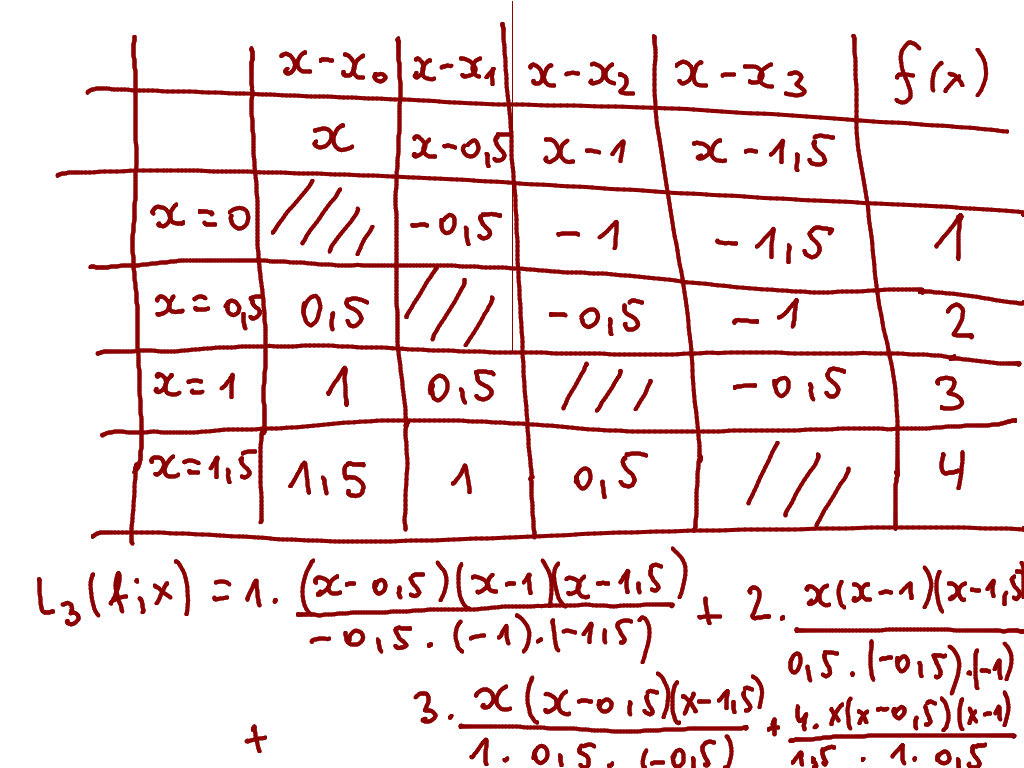 x-x₀ x-x₁ x-x₂ x-x₃ f(x)
x x-0,5 x-1 x-1,5
x=0 -0,5 -1 -1,5 1
x=0,5 0,5 -0,5 -1 2
x=1 1 0,5 -0,5 3
x=1,5 1,5 1 0,5 4
L₃(f;x) = 1. (x-0,5)(x-1)(x-1,5) + 2. x(x-1)(x-1,5
-0,5.(-1).(-1,5) 0,5.(-0,5).(-1)
+ 3. x(x-0,5)(x-1,5) + 4.x(x-0,5)(x-1)
1. 0,5. (-0,5) 1,5. 1. 0,5